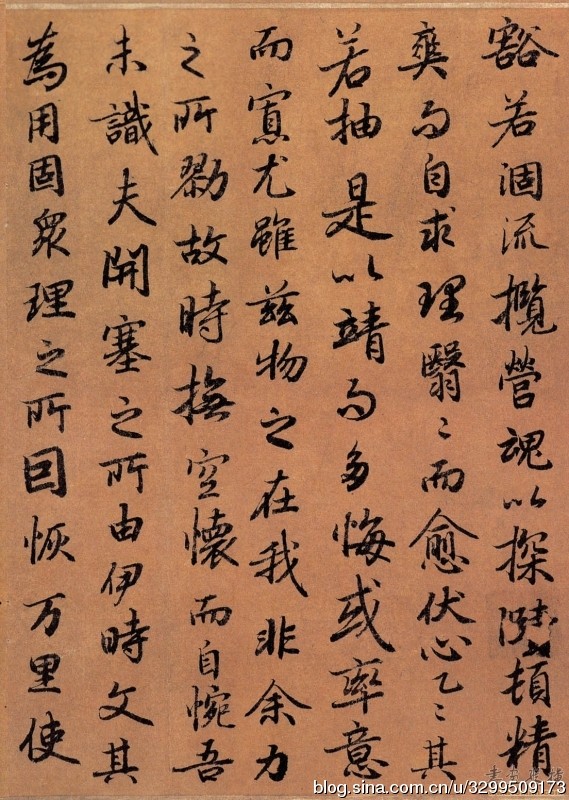 豁若涸流攬營魂以探賾頓精
爽而自求理翳〻而愈伏心乙〻其
若抽是以靖而多悔或率意
而寡尤雖茲物之在我非余力
之所勠故時撫空懷而自惋吾
未識夫開塞之所由伊時文其
為用固眾理之所因恢万里使
blog.sina.com.cn/u/3299509173